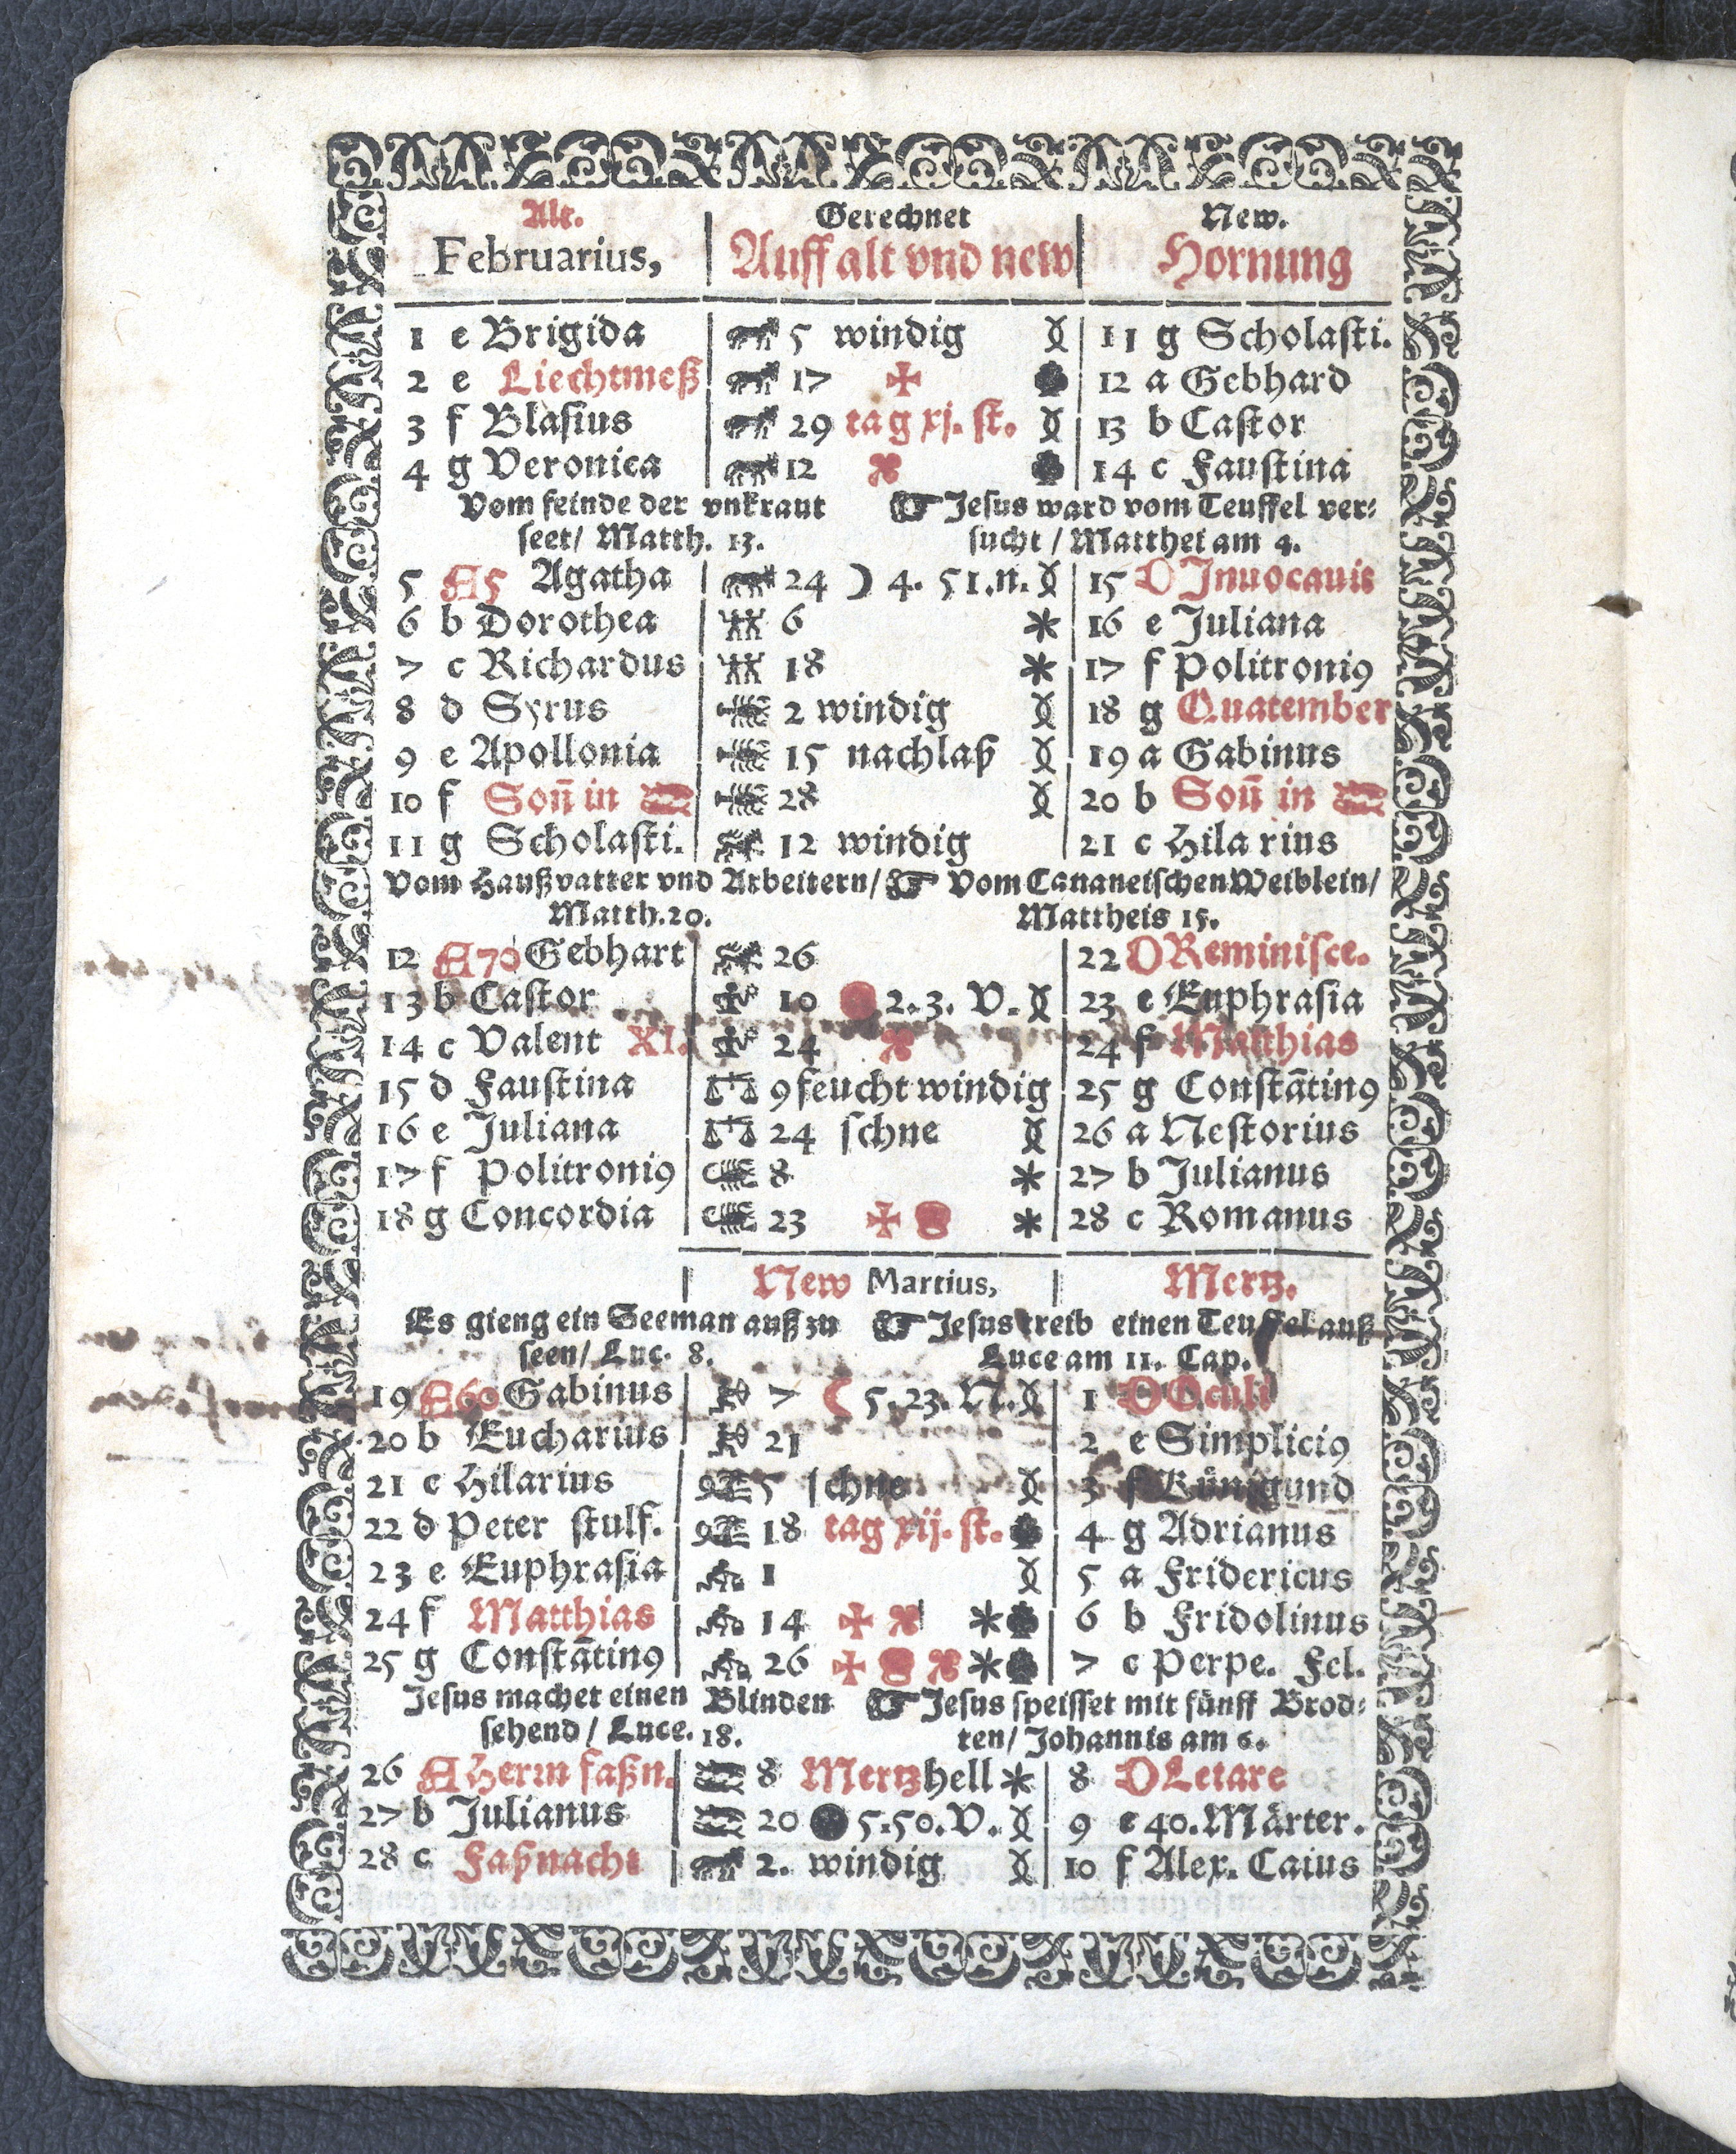 Alt. Gerechnet New.
Februarius, Auff alt vnd new Hornung
1 e Brigida 5 windig 11 g Scholasti.
2 e Liechtmeß 17 12 a Gebhard
3 f Blasius 29 tag xj. st. 13 b Castor
4 g Veronica 12 14 c Faustina
Vom feinde der vnkraut ☞ Jesus ward vom Teuffel ver⸗
seet/ Matth. 13. sucht / Matthei am 4.
5 A5 Agatha 24 ☽ 4. 51.n. 15 D Inuocauit
6 b Dorothea 6 * 16 e Juliana
7 c Richardus 18 * 17 f Politroniꝰ
8 d Syrus 2 windig 18 g Quatember
9 e Apollonia 15 nachlaß 19 a Gabinus
10 f Soñ in ♓ 28 20 b Soñ in ♓
11 g Scholasti. 12 windig 21 c Hilarius
Vom Haußvatter vnd Arbeitern/ ☞ Vom Cananeischen Weiblein/
Matth. 20. Mattheis 15.
12 A70 Gebhart 26 22 D Reminisce.
13 b Castor 10 2. 3. V. 23 e Euphrasia
14 c Valent XI. 24 24 f Matthias
15 d Faustina 9 feucht windig 25 g Constātinꝰ
16 e Juliana 24 schne 26 a Nestorius
17 f Politroniꝰ 8 * 27 b Julianus
18 g Concordia 23 * 28 c Romanus
New Martius, Mertz.
Es gieng ein Seeman auß zu ☞ Jesus treib einen Teuffel auß
seen/ Luc. 8. Luce am 11. Cap.
19 A60 Gabinus 7 ☾ 5. 23. N. 1 D Oculi
20 b Eucharius 21 2 e Simpliciꝰ
21 c Hilarius 5 schne 3 f Künigund
22 d Peter stulf. 18 tag xij. st. 4 g Adrianus
23 e Euphrasia 1 5 a Fridericus
24 f Matthias 14 * 6 b Fridolinus
25 g Constātinꝰ 26 * 7 c Perpe. Fel.
Jesus machet einen Blinden ☞ Jesus speisset mit fünff Brod⸗
sehend / Luce. 18. ten/ Johannis am 6.
26 A Herrn faßn. 8 Mertz hell * 8 D Letare
27 b Julianus 20 5. 50. V. 9 e 40. Märter.
28 c Faßnacht 2. windig 10 f Alex. Caius